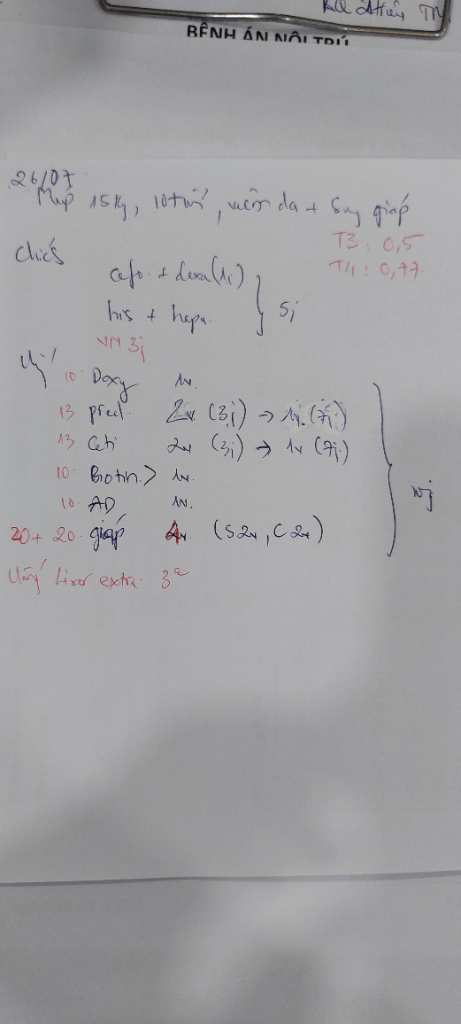 BỆNH ÁN NỘI TRÚ
26/07
Mập 15kg, 10 tuổi, viêm da + Suy giáp
T3 : 0,5
T4 : 0,77
Chích
cefo + dexa (1j)
his + hepa } 5j
VN 3j
Uống
10 Doxy 1v.
13 pred. 2v (3j) → 1v. (7j)
13 Ceti 2v (3j) → 1v (7j)
10 Biotin 1v.
10 AD 1v. } 10j
20 + 20 giáp 4v. (S 2v, C 2v)
Uống Liver extra